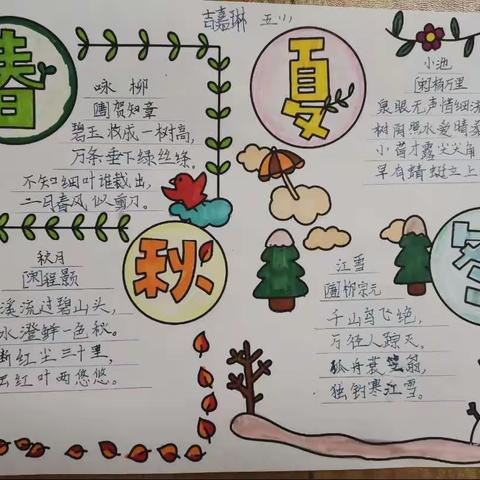 吉嘉琳 五
春
咏柳
贺知章
碧玉妆成一树高,
万条垂下绿丝绦。
不知细叶谁裁出,
二月春风似剪刀。
夏
小池
杨万里
泉眼无声惜细流
树阴照水爱晴柔
小荷才露尖尖角
早有蜻蜓立上
秋
秋月
程颢
溪流过碧山头,
水澄鲜一色秋。
断红尘三十里,
云红叶两悠悠。
冬
江雪
柳宗元
千山鸟飞绝,
万径人踪灭。
孤舟蓑笠翁,
独钓寒江雪。